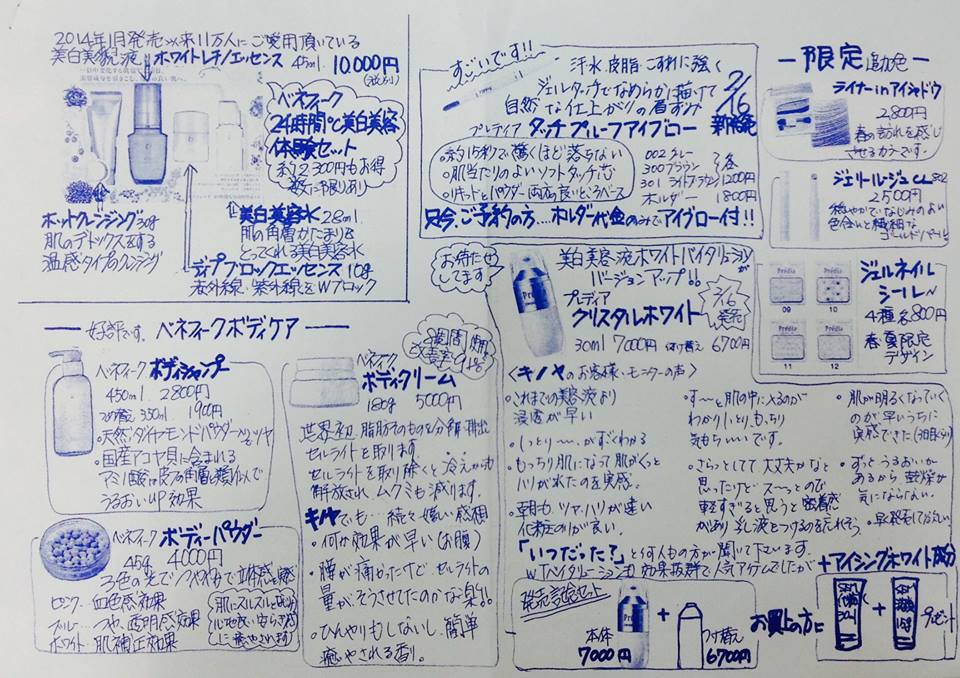 2014年1月発売以来11万人にご愛用頂いている
美白美容液 ホワイトレチノエッセンス 45ml 10,000円
ベネフィーク
24時間℃美白美容
体験セット
約2,300円もお得
数に限りあり
ホットクレンジング30g
肌のデトックスをする
温感タイプのクレンジング
美白美容水 28ml
肌の角層かたまりを
とってくれる美白美容水
ディープブロックエッセンス 10g
赤外線・紫外線をWブロック
好評です。ベネフィークボディケア
ベネフィーク ボディシャンプー
450ml 2800円
つめ替え 350ml 1900円
・天然ダイヤモンドパウダーツルツヤ
・国産アコヤ貝に含まれる
アミノ酸 皮フの角層を緩ゆんで
うるおいUP効果
ベネフィーク ボディーパウダー
45g 4000円
3色の光でツヤメキで立体感を演
ピンク… 血色感効果
ブルー… つや、透明感効果
ホワイト… 肌補正効果
8週間使用
改善率91.8%
ベネフィーク
ボディクリーム
180g 5000円
世界初 脂肪そのものを分解・排出
セルライトを取ります。
セルライトを取り除くと冷えからも
解放され、ムクミも減ります。
キノヤでも… 続々嬉しい感想
・何か効果が早い(お腹)
・腰が痛かったけど、セルライトの
量がそうさせてたのかな 楽!!
・ひんやりもしないし、簡単
癒やされる香り。
すごいです!!
汗・水、皮脂・こすれに強く
ジェルタッチでなめらかに描けて
自然な仕上がりの眉ずみ
2/16
新発売
プレディア タッチプルーフアイブロー
・約15秒で驚くほど落ちない
・肌当たりのよいソフトタッチ芯
・リキッドとパウダー両方の良いとこベース
002グレー
300ブラウン 各
301ライトブラウン 1200円
ホルダー 1800円
只今、ご予約の方…ホルダー代金のみでアイブロー付!!
お待たせしてます
美白美容液ホワイトバイタリューションが
バージョンアップ!!
プレディア
クリスタルホワイト
2/16
発売
30ml 7000円 付け替え 6700円
〈キノヤのお客様・モニターの声〉
・これまでの美容液より
浸透が早い
・しっとり〜、がすぐわかる
・もっちり肌になって肌がぐっと
ハリがでたのを実感。
・朝も、ツヤ、ハリが違い
化粧のりが良い。
・す〜と肌の中に入るのが
わかり しっとり、もっちり
気もちいいです。
・さらっとしてて大丈夫かなと
思ったけど ス〜ッとのび
軽すぎると思うと密着感
があり 乳液をつけるのを忘れそう。
・肌が明るくなっていく
のが早いうちに
実感できた(3日目くらい)
・ずっとうるおいが
あるから 乾燥が
気にならない。
・早く発売して下さい
「いつだった?」と何人もの方が聞いて下さいます。
Wバイタリューションも効果抜群で人気アイテムでしたが
+アイシングホワイト成分
発売記念セット
本体
7000円
+
つけ替え
6700円
お買上の方に
+
プレゼント
限定 追加色
ライナーinアイシャドウ
2,800円
春の訪れを感じ
させるカラーです。
ジェリールージュ CL 802
2500円
穏やかでなじみのよい
色合いと繊細な
ゴールドパール
ジェルネイル
シール〜
4種 各800円
春夏限定
デザイン
09 10
11 12